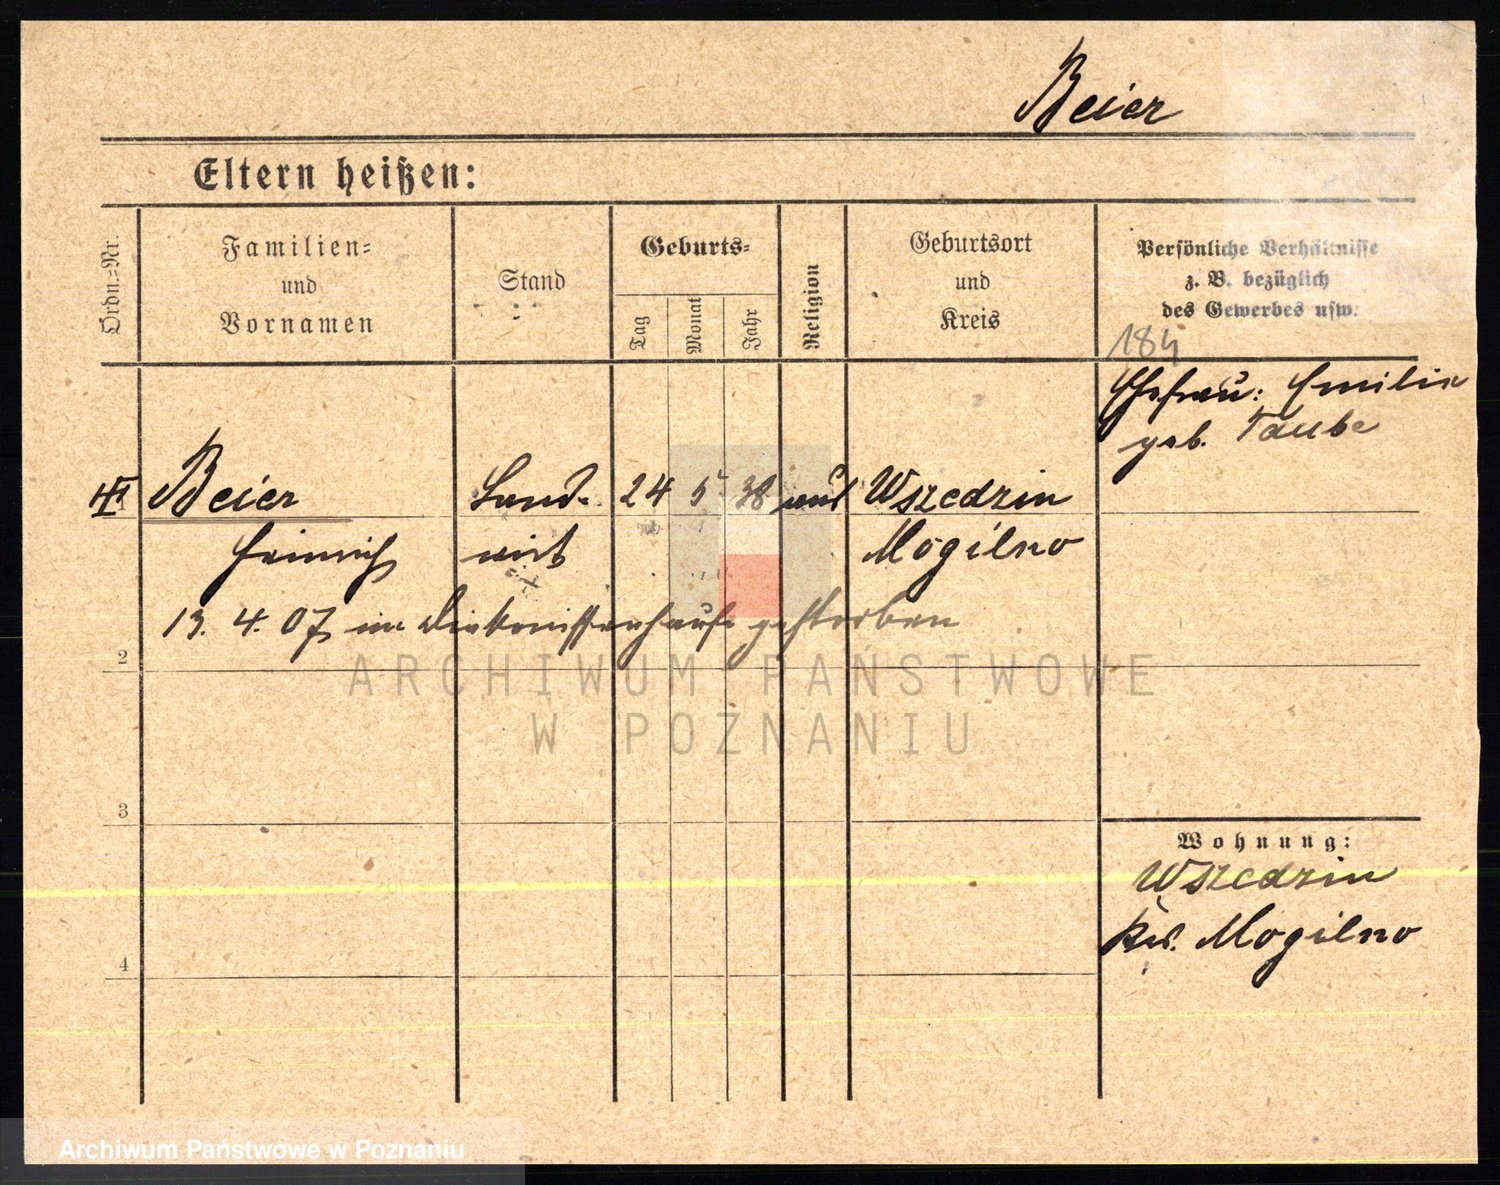 Beier
Eltern heißen:
Ordn.=Nr.
Familien=
und
Vornamen
Stand
Geburts=
Tag
Monat
Jahr
Religion
Geburtsort
und
Kreis
Persönliche Verhältnisse
z. B. bezüglich
des Gewerbes usw.
184
Ehefrau: Emilie
geb. Taube
1
Beier
Land-
24 5 38
Wszedzin
Heinrich
wirt
Mogilno
13. 4. 07 im Diakonissenhause gestorben
2
ARCHIWUM PAŃSTWOWE
W POZNANIU
3
Wohnung:
Wszedzin
Krs. Mogilno
4
Archiwum Państwowe w Poznaniu